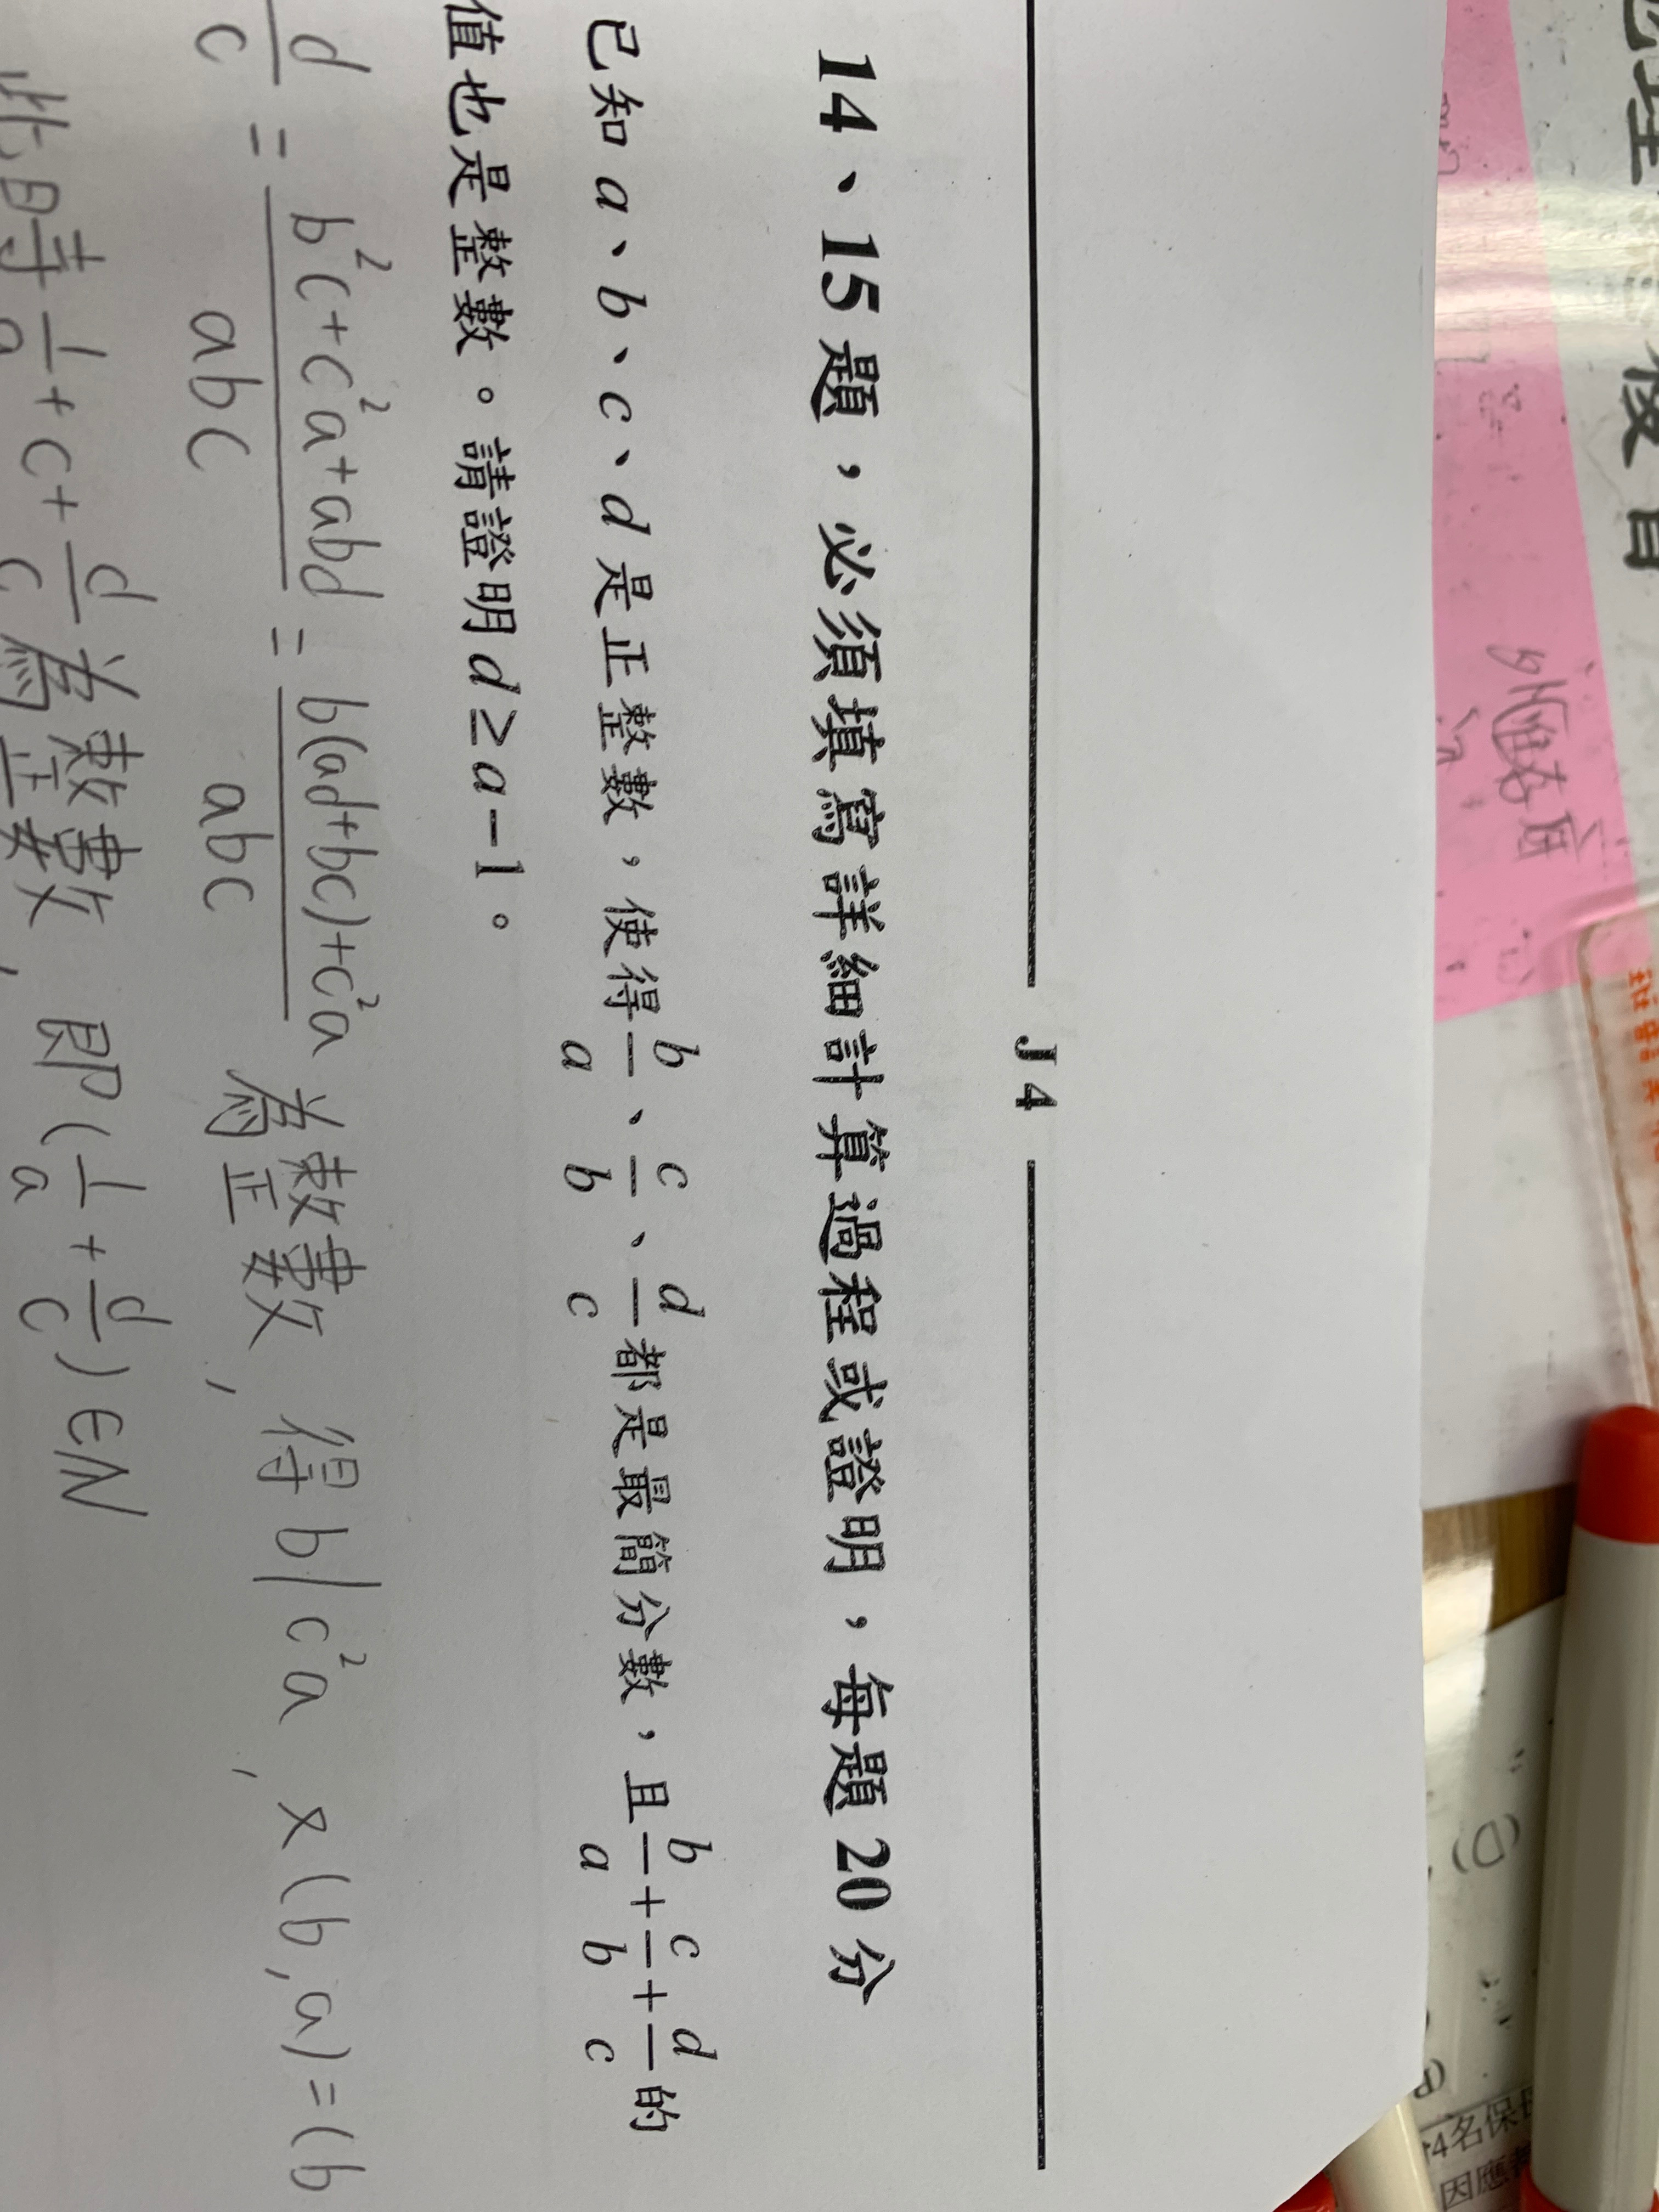 J 4
14、15題，必須填寫詳細計算過程或證明，每題20分
已知 a、b、c、d 是正整數，使得 b/a、c/b、d/c 都是最簡分數，且 b/a + c/b + d/c 的
值也是整數。請證明 d ≥ a − 1。
d/c = (b²c+c²a+abd)/abc = (b(ad+bc)+c²a)/abc 為整數, 得 b|c²a, x(b,a)=(b
此時 1/a + c + d/c 為整數, 即 (1/a + d/c) ∈ N
14名保
因應